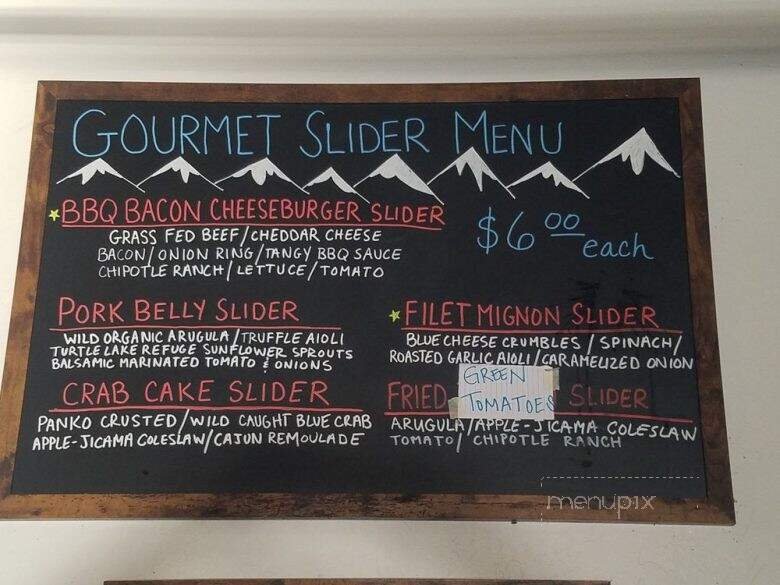 GOURMET SLIDER MENU
BBQ BACON CHEESEBURGER SLIDER
GRASS FED BEEF/CHEDDAR CHEESE
BACON/ONION RING/TANGY BBQ SAUCE
CHIPOTLE RANCH/LETTUCE/TOMATO
$6.00 each
PORK BELLY SLIDER
WILD ORGANIC ARUGULA/TRUFFLE AIOLI
TURTLE LAKE REFUGE SUNFLOWER SPROUTS
BALSAMIC MARINATED TOMATO & ONIONS
FILET MIGNON SLIDER
BLUE CHEESE CRUMBLES / SPINACH/
ROASTED GARLIC AIOLI/CARAMELIZED ONION
CRAB CAKE SLIDER
PANKO CRUSTED/WILD CAUGHT BLUE CRAB
APPLE-JICAMA COLESLAW/CAJUN REMOULADE
FRIED GREEN TOMATOES SLIDER
ARUGULA/APPLE-JICAMA COLESLAW
TOMATO/ CHIPOTLE RANCH
menupix